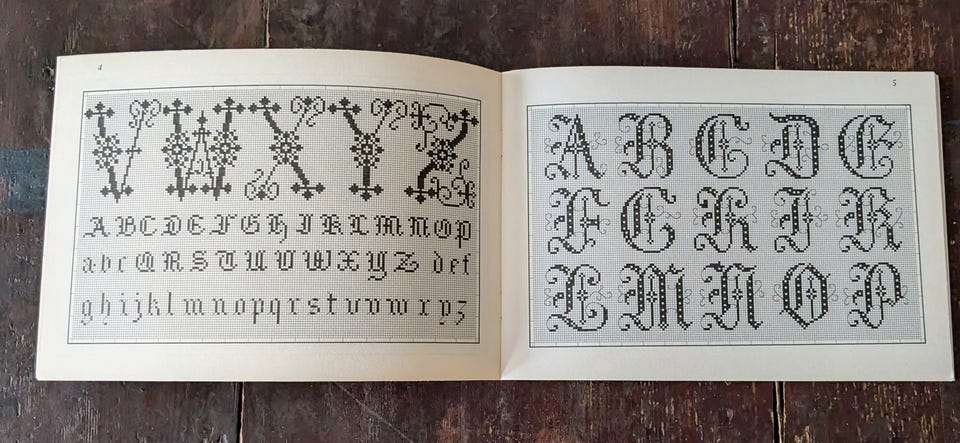 4
V W X Y Z
A B C D E F G H I K L M N O P
a b c Q R S T U V W X Y Z d e f
g h i j k l m n o p q r s t u v w x y z
5
A B C D E
F G H I K
L M N O P